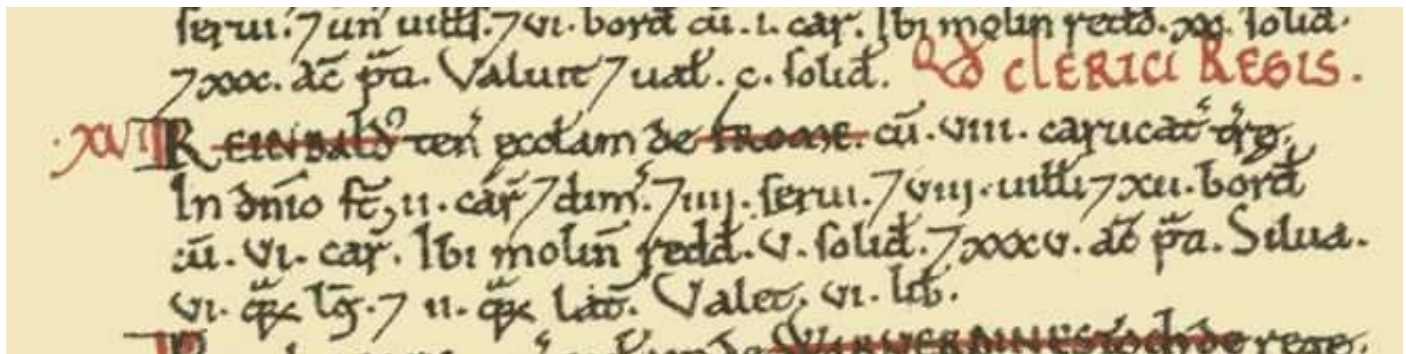 serui. ⁊ un̄ uill̄s. ⁊ vi. bord̄ cū. i. car̄. Ibi molin̄ redd̄. xx. solid̄.
⁊ xxx. ac̄ p̃ti. Valuit ⁊ ual̄. c. solid̄. Qd̄ CLERICI REGIS.
.XVI. REINBALD᷒ ten̄ ęccl̄am de FROME. cū. viii. carucat̄ tr̄ę.
In dn̄io st̄, ii. car̄ ⁊ dim̄. ⁊ iiij. serui. ⁊ viij. uill̄i ⁊ xii. bord̄
cū. vi. car̄. Ibi molin̄ redd̄. v. solid̄. ⁊ xxxv. ac̄ p̃ti. Silua.
vi. q̃ꝝ lḡ. ⁊ ii. q̃ꝝ lat̄. Valet. vi. lib̄.
rege.